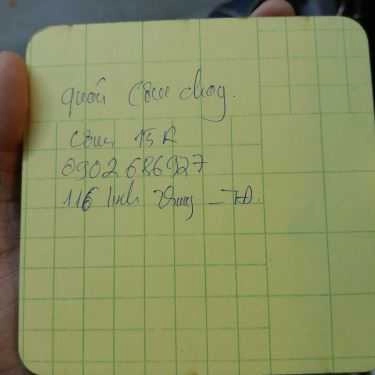 quán cơm chay.
Cơm 15k
0902686927
116 linh Trung - TĐ.